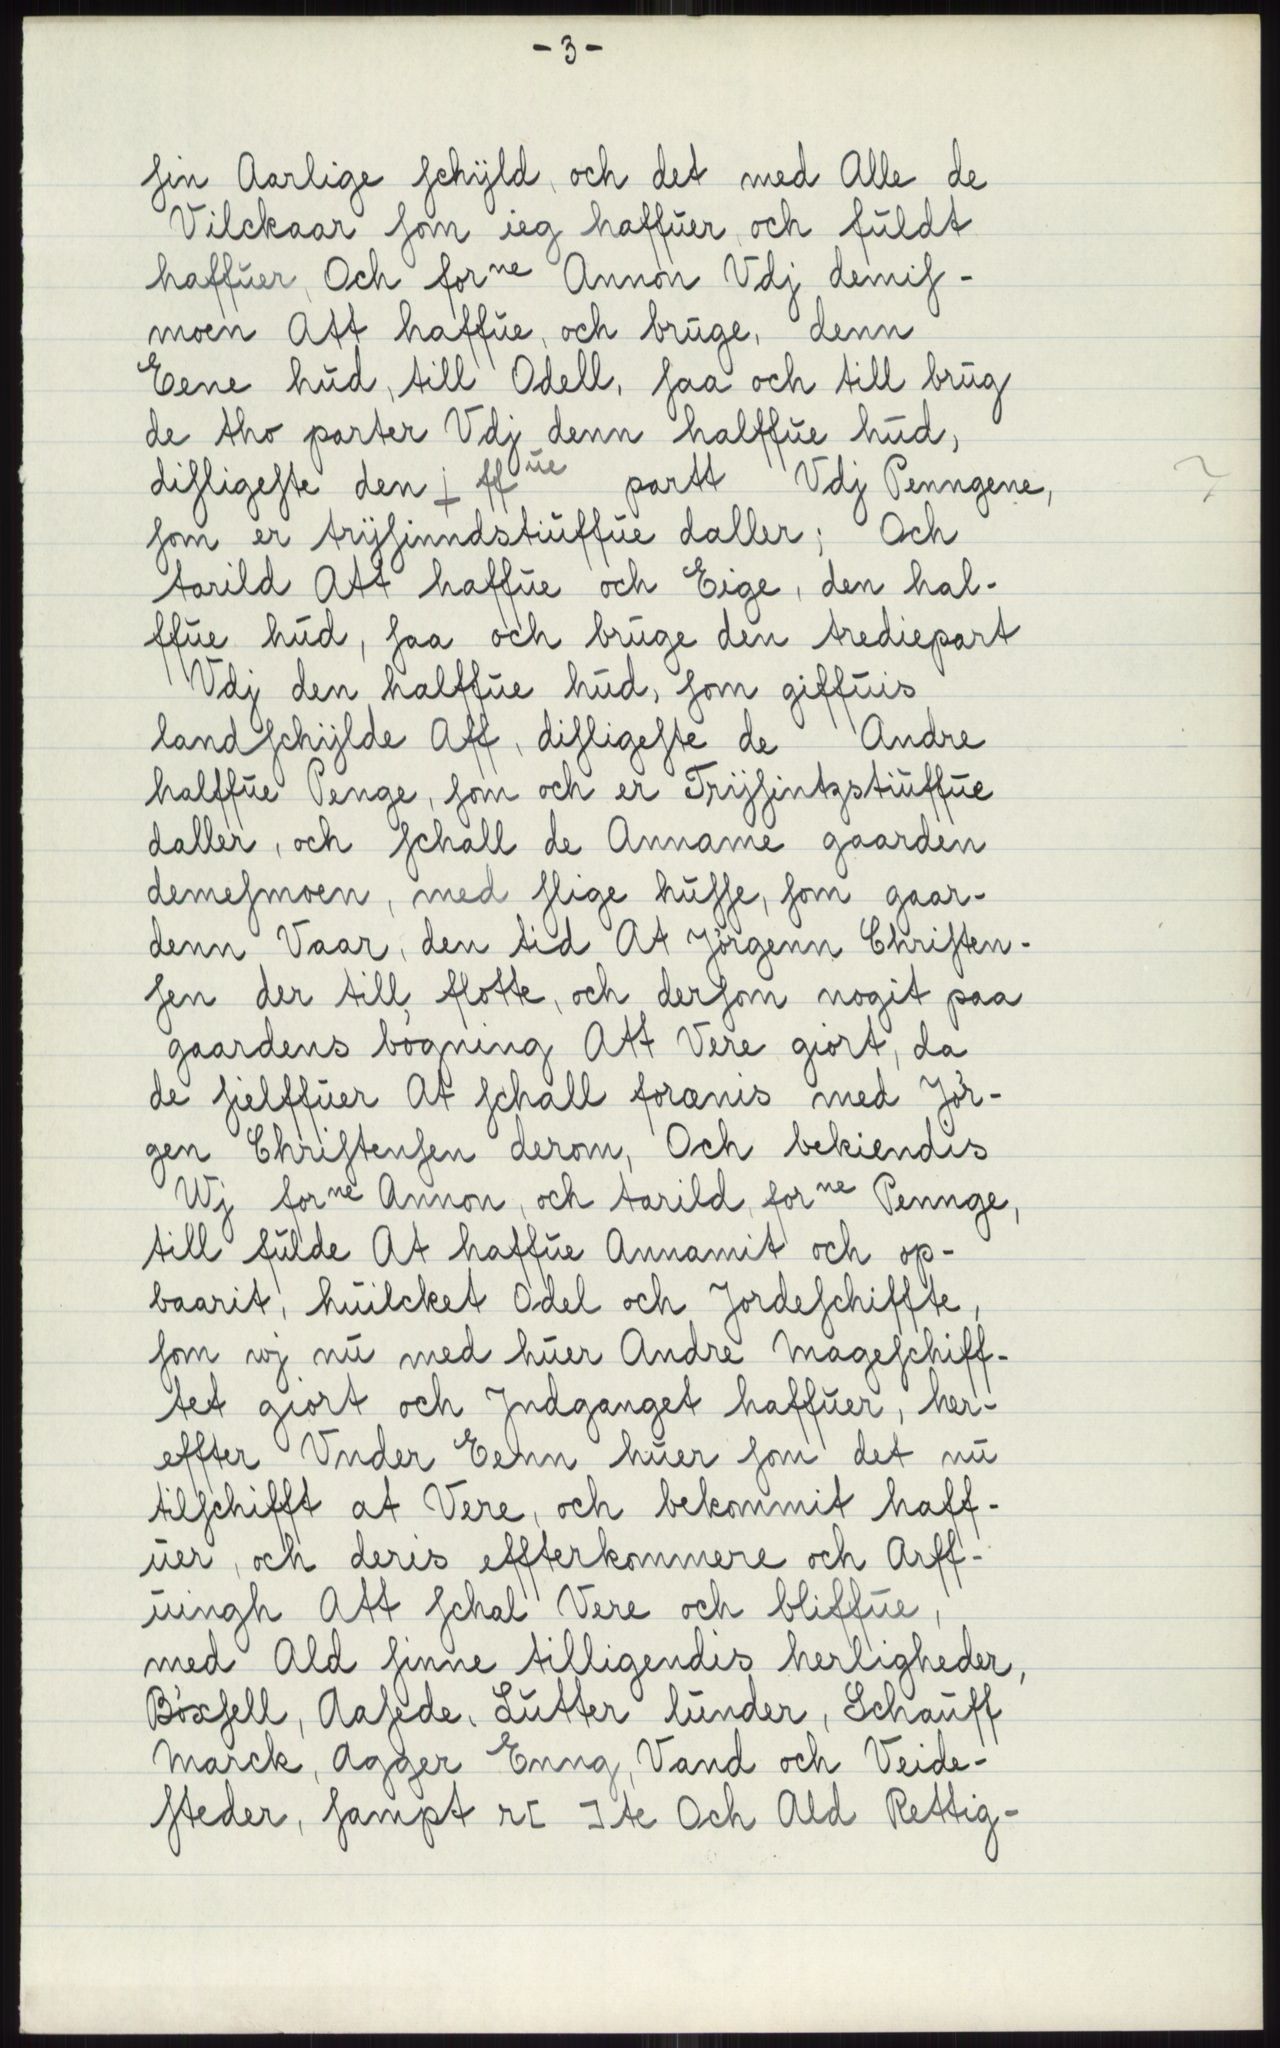 - 3 -
sin Aarlige schÿld, och det med Alle de
Vilckaar som ieg haffuer, och fuldt
haffuer, Och forne Annon Vdj demis-
moen Att haffue, och brūge, denn
Eene hūd, till Odell, saa och till brūg
de tho parter Vdj denn halffūe hūd,
disligeste den ffūe partt Vdj Penngene,
som er trÿsinndstiūffūe daller; Och
tarild Att haffūe och Eige, den hal-
ffūe hūd, saa och brūge den trediepart
Vdj den halffūe hūd, som giffūis
landschÿlde Aff, disligeste de Andre
halffūe Penge, som och er Trÿsintzstiūffūe
daller, och schall de Anname gaarden
demesmoen, med slige hūsse, som gaar-
denn Vaar, den tid At Jörgenn Christen-
sen der till flotte, och dersom nogit paa
gaardens bögning Att Vere giort, da
de sielffūer At schall forænis med Jör-
gen Christensen derom, Och bekiendis
Wj forne Annon, och tarild, forne Pennge,
till fūlde At haffūe Annamit och op-
baarit, hūilcket Odel och Jordeschiffte,
som wj nū med hūer Andre Mageschiff-
tet giort och Jndganget haffūer, her-
effter Vnder Eenn hūer som det nū
tilschifft at Vere, och bekommit haff-
ūer, och deris effterkommere och Arff-
ūingh Att schal Vere och bliffūe,
med Ald sinne tilligendis herligheder,
Böxsell, Aasede, Lūtter lūnder, Schaūff
Marck, Agger Enng, Vand och Veide-
steder, sampt r[ ]te Och Ald Rettig-